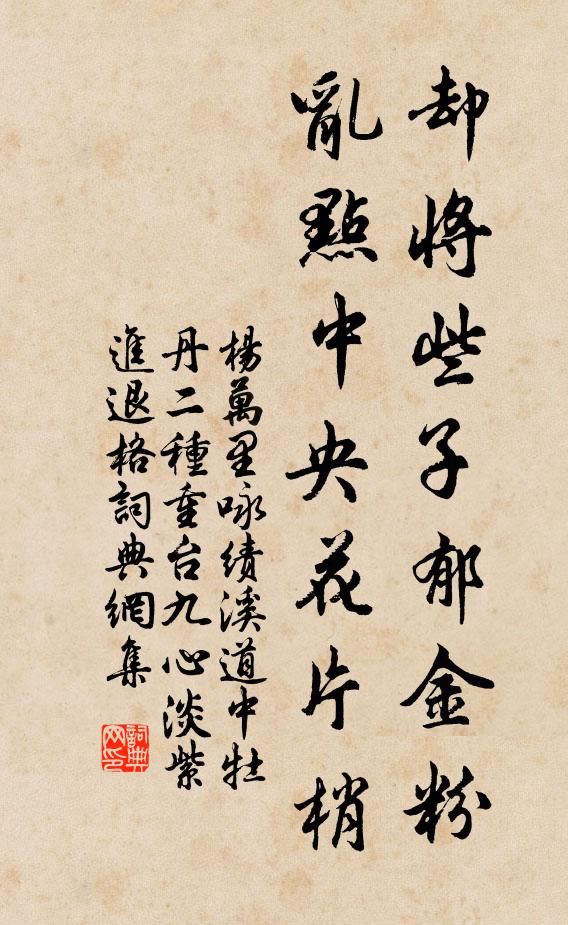 却將些子郁金粉
亂點中央花片梢
楊萬里咏績溪道中牡
丹二種重台九心淡紫
進退格詞典網集
詞典网印